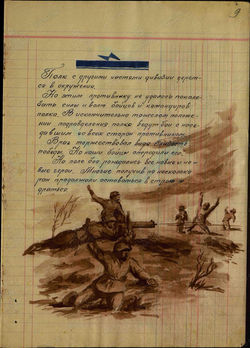 9
Полк с другими частями дивизии дерет-
ся в окружении.
Но этим противнику не удалось поколе-
бать силы и волю бойцов и командиров
полка. В исключительно тяжелом положе-
нии подразделения полка ведут бои с насе-
давшим со всех сторон противником.
Враг торжествовал видя
победы. Но наши бойцы опередили его.
На поле боя рождались все новые и но-
вые герои. Многие получив по несколько
ран продолжали оставаться в строю и
драться